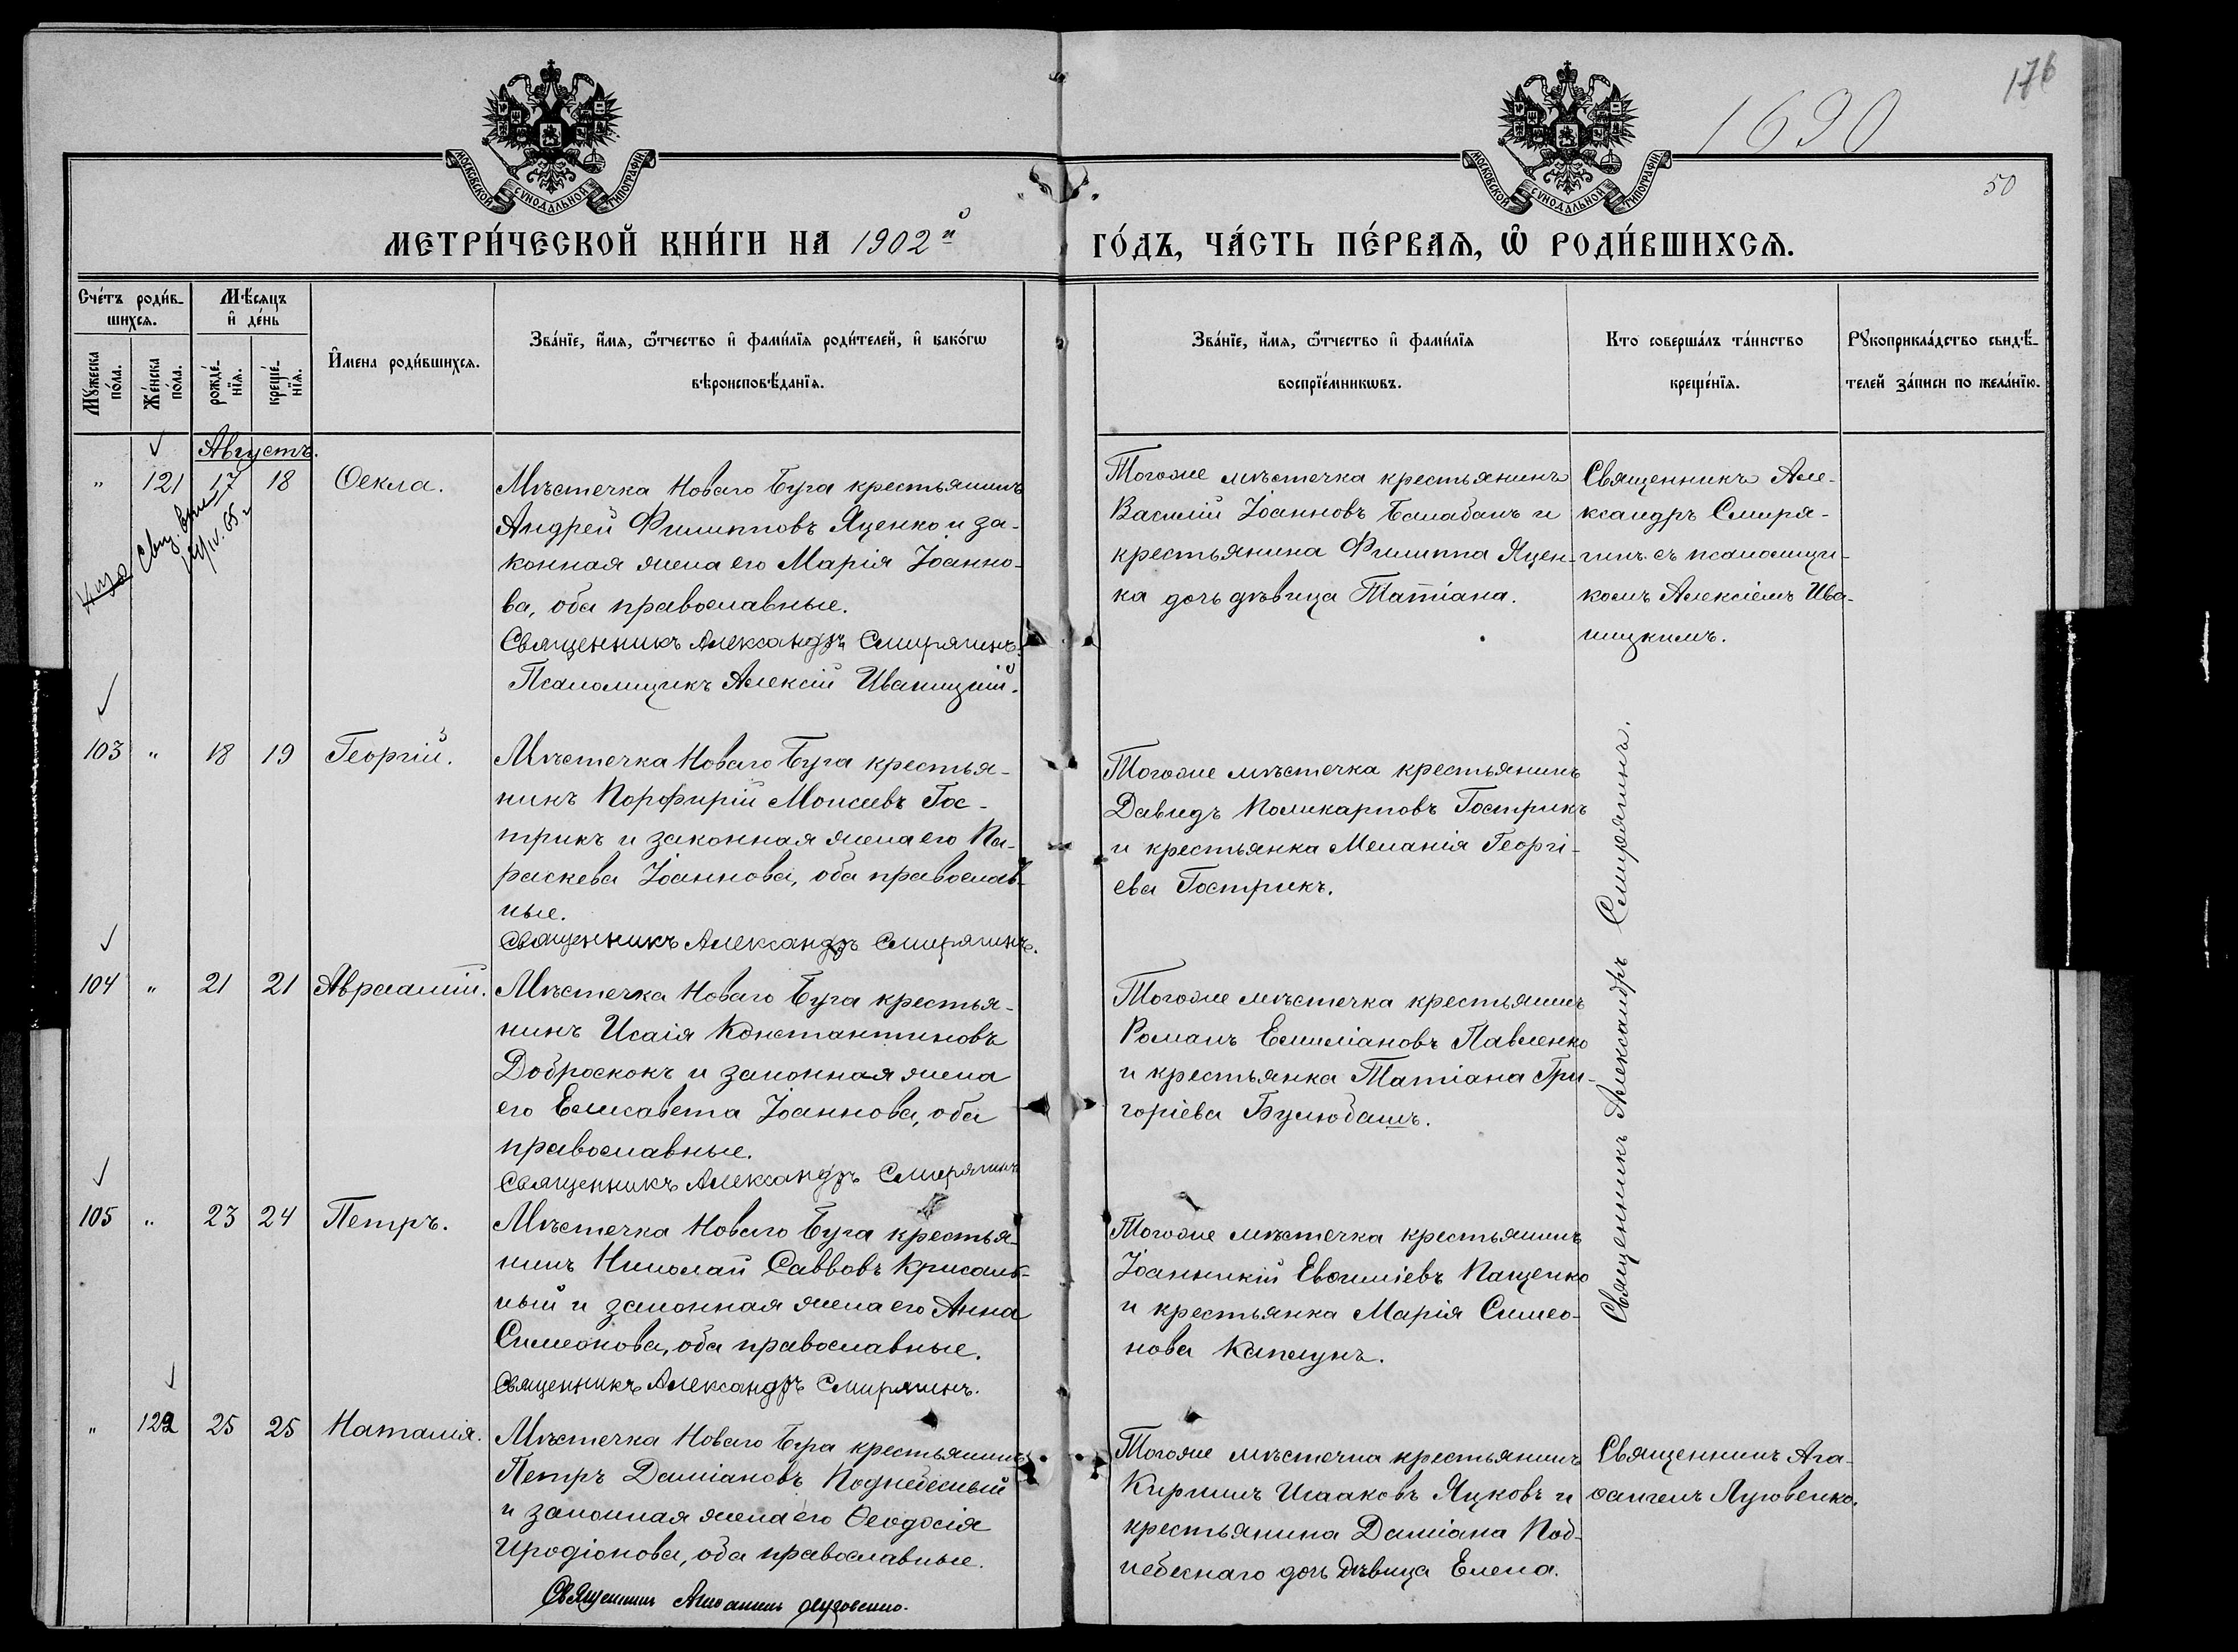 176
1690
50
МОСКОВСКОЙ СУНОДАЛЬНОЙ ТИПОГРАФІИ
МОСКОВСКОЙ СУНОДАЛЬНОЙ ТИПОГРАФІИ
МЕТРИ́ЧЕСКОЙ КНИ́ГИ НА 1902й
ГО́ДЪ, ЧА́СТЬ ПЕ́РВАЯ, Ѡ РОДИ́ВШИХСЯ.
Сче́тъ роди́в-
шихся.
Мѣ́сяцъ
и де́нь
Му́жеска по́ла.
Же́нска по́ла.
рожде́-
нїя.
креще́-
нїя.
И́мена роди́вшихся.
Зва́нїе, и́мя, ѻ́тчество и фами́лїя роди́телей, и како́гѡ
вѣроисповѣ́данїя.
Зва́нїе, и́мя, ѻ́тчество и фами́лїя
воспрїе́мникѡвъ.
Кто соверша́лъ та́инство
креще́нїя.
Рꙋкоприкла́дство свидѣ́-
телей за́писи по жела́нїю.
Августъ.
" 121 17 18 Ѳекла.
Мѣстечка Новаго Буга крестьянинъ
Андрей Филипповъ Яценко и за-
конная жена его Марія Іоанно-
ва, оба православные.
Священникъ Александръ Смирягинъ.
Псаломщикъ Алексій Иваницкій.
Тогоже мѣстечка крестьянинъ
Василій Іоанновъ Балабанъ и
крестьянина Филиппа Яцен-
ка дочь дѣвица Татіана.
Священникъ Але-
ксандръ Смиря-
гинъ съ псаломщи-
комъ Алексіемъ Ива-
ницкимъ.
103 " 18 19 Георгій.
Мѣстечка Новаго Буга крестья-
нинъ Порфирій Моисеевъ Гос-
трикъ и законная жена его Па-
раскева Іоаннова, оба православ-
ные.
Священникъ Александръ Смирягинъ.
Тогоже мѣстечка крестьянинъ
Давидъ Поликарповъ Гострикъ
и крестьянка Меланія Георгі-
ева Гострикъ.
Священникъ Александръ Смирягинъ.
104 " 21 21 Авраамій.
Мѣстечка Новаго Буга крестья-
нинъ Исаія Константиновъ
Доброскокъ и законная жена
его Елисавета Іоаннова, оба
православные.
Священникъ Александръ Смирягинъ
Тогоже мѣстечка крестьянинъ
Романъ Емиліановъ Павленко
и крестьянка Татіана Гри-
горіева Булюбашъ.
105 " 23 24 Петръ.
Мѣстечка Новаго Буга крестья-
нинъ Николай Саввовъ
ный и законная жена его Анна
Симеонова, оба православные.
Священникъ Александръ Смирягинъ.
Тогоже мѣстечка крестьянинъ
Іоанникій Пащенко
и крестьянка Марія Симео-
нова Каплунъ.
" 122 25 25 Наталія.
Мѣстечка Новаго Буга крестьянинъ
Петръ Даміановъ Поднебесный
и законная жена его Ѳеодосія
Иродіонова, оба православные.
Священникъ Агаѳангелъ Луговенко.
Тогоже мѣстечка крестьянинъ
Кириллъ Исааковъ Яцковъ и
крестьянина Даміана Под-
небеснаго дочь дѣвица Елена.
Священникъ Ага-
ѳангелъ Луговенко.